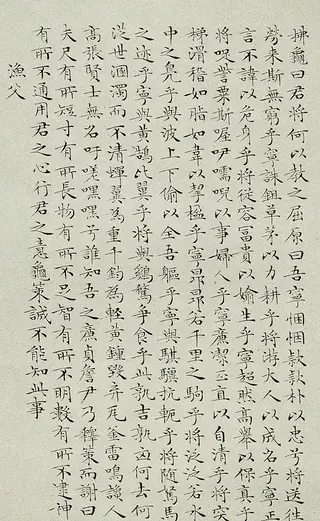 拂龜曰君將何以教之屈原曰吾寧悃悃款款朴以忠乎將送往
勞來斯無窮乎寧誅鉏草茅以力耕乎將游大人以成名乎寧正
言不諱以危身乎將從容富貴以媮生乎寧超然高舉以保真乎
將哫訾粟斯喔咿嚅唲以事婦人乎寧廉潔正直以自清乎將突
梯滑稽如脂如韋以挈楹乎寧昂昂若千里之駒乎將泛泛若水
中之鳧乎與波上下偷以全吾軀乎寧與騏驥抗軛乎將隨駑馬
之迹乎寧與黃鵠比翼乎將與鷄鶩爭食乎此孰吉孰凶何去何
從世溷濁而不清蟬翼為重千鈞為輕黃鍾毀棄瓦釜雷鳴讒人
高張賢士無名吁嗟嘿嘿兮誰知吾之廉貞詹尹乃釋策而謝曰
夫尺有所短寸有所長物有所不足智有所不明數有所不逮神
有所不通用君之心行君之意龜策誠不能知此事
漁父